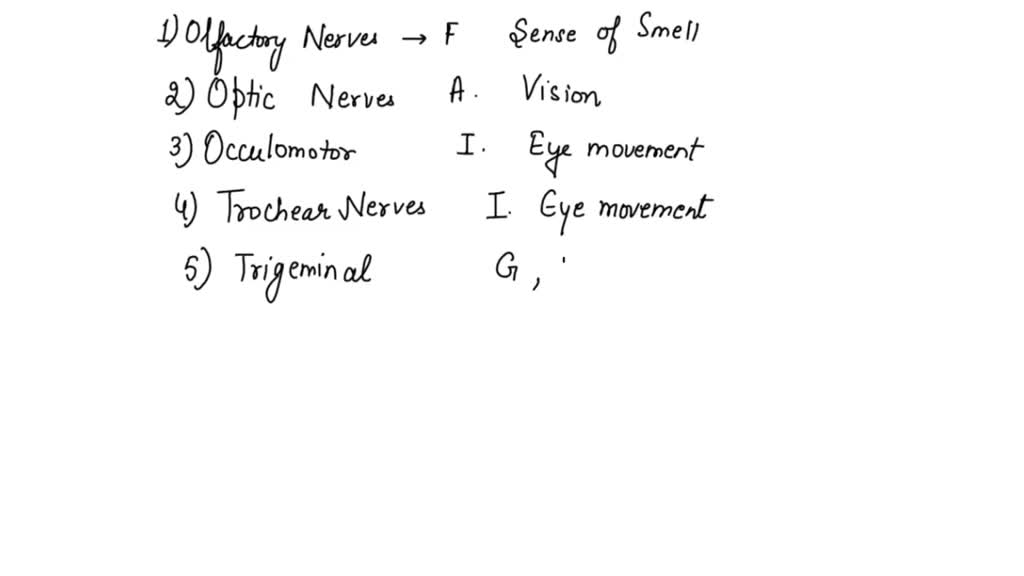 1) Olfactory Nerves → F Sense of Smell
2) Optic Nerves A. Vision
3) Occulomotor I. Eye movement
4) Trochear Nerves I. Eye movement
5) Trigeminal G, '